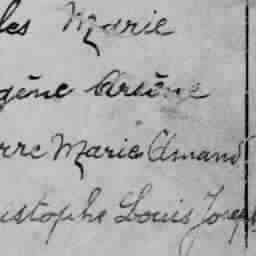 les Marie
gène Arsène
rre Marie Amand
ustophe Louis Joseph